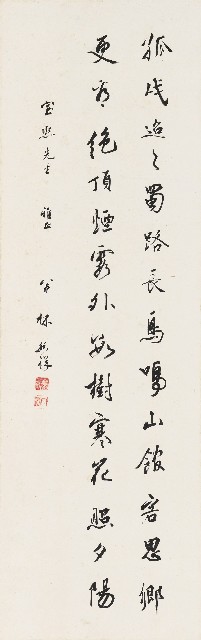 孤戍迢〻蜀路長鳥鳴山館客思鄉
更看絕頂煙霞外數樹寒花照夕陽
先生 雅正 弟林熊祥